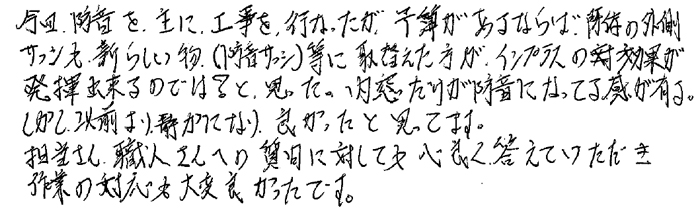 今回、防音を、主に、工事を、行なったが、予算があるならば、既存の外側
サッシも、新らしい物、(防音サッシ)等に取替えた方が、インプラスの対効果が
発揮出来るのではないかと、思った。内窓だけが防音になってる感が有る。
しかし、以前より、静かになり、良かったと思ってます。
担当さん、職人さんへの質問に対しても心良く、答えていただき
作業の対応も大変良かったです。